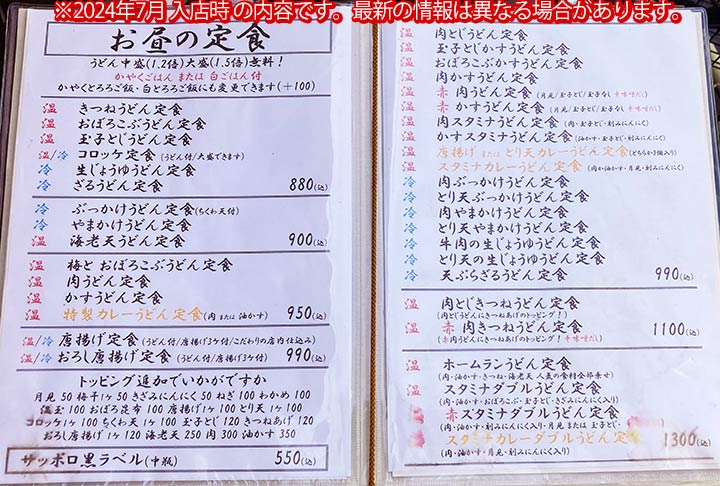 ※2024年7月 入店時 の内容です。最新の情報は異なる場合があります。
お昼の定食
うどん 中盛(1.2倍)大盛(1.5倍)無料！
かやくごはん または 白ごはん付
かやくとろろご飯・白とろろご飯にも変更できます(+100)
温 きつねうどん定食
温 おぼろこぶうどん定食
温 玉子とじうどん定食
温/冷 コロッケ定食(うどん付/大盛できます)
冷 生じょうゆうどん定食
冷 ざるうどん定食 880(込)
冷 ぶっかけうどん定食(ちくわ天付)
冷 やまかけうどん定食
温 海老天うどん定食 900(込)
温 梅と おぼろこぶうどん定食
温 肉うどん定食
温 かすうどん定食
温 特製カレーうどん定食(肉 または 油かす) 950(込)
温/冷 唐揚げ定食(うどん付/唐揚げ3ケ付/こだわりの店内仕込み)
温/冷 おろし唐揚げ定食(うどん付/唐揚げ3ケ付) 990(込)
トッピング追加でいかがですか
月見 50 梅干1ケ 50 きざみにんにく 50 ねぎ 100 わかめ 100
温玉 100 おぼろ昆布 100 唐揚げ1ケ 100 とり天1ケ 100
コロッケ1ケ 100 ちくわ天1ケ 100 玉子とじ 120 きつねあげ 120
おろし唐揚げ1ケ 120 海老天 250 肉 300 油かす 350
サッポロ黒ラベル(中瓶) 550(込)
温 肉とじうどん定食
温 玉子とじかすうどん定食
温 おぼろこぶかすうどん定食
温 肉かすうどん定食
温 赤 肉うどん定食(月見/玉子とじ/玉子なし 辛味噌だし)
温 赤 かすうどん定食(月見/玉子とじ/玉子なし 辛味噌だし)
温 肉スタミナうどん定食(肉・玉子とじ・刻みにんにく)
温 かすスタミナうどん定食(油かす・玉子とじ・刻みにんにく)
温 唐揚げ または とり天カレーうどん定食(どちらか3個入り)
温 スタミナカレーうどん定食(肉か油かす・月見・刻みにんにく)
冷 肉ぶっかけうどん定食
冷 とり天ぶっかけうどん定食
冷 肉やまかけうどん定食
冷 とり天やまかけうどん定食
冷 牛肉の生じょうゆうどん定食
冷 とり天の生じょうゆうどん定食
冷 天ぷらざるうどん定食 990(込)
温 肉とじきつねうどん定食
(肉とじうどんにきつねあげのトッピング！)
温 赤 肉きつねうどん定食 1100(込)
(赤肉うどんにきつねあげのトッピング！ 辛味噌だし)
温 ホームランうどん定食
(肉・油かす・きつね・海老天 人気の食材全部乗せ)
温 スタミナダブルうどん定食
(肉・油かす・おぼろこぶ・玉子とじ・きざみにんにく入り)
赤スタミナダブルうどん定食
(肉・油かす・月見 または 玉子とじ・
スタミナカレーダブルうどん定 1300(込)
(肉・油かす・月見・刻みにんにく入り)